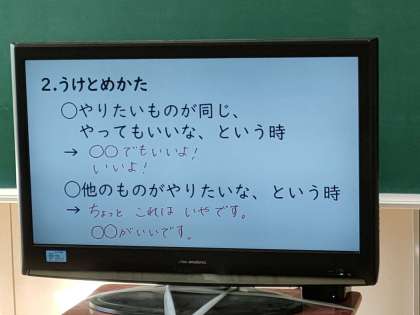 2.うけとめかた
〇やりたいものが同じ、
やってもいいな、という時
→ 〇〇でもいいよ!
いいよ!
〇他のものがやりたいな、という時
→ ちょっと これは いやです。
〇〇がいいです。